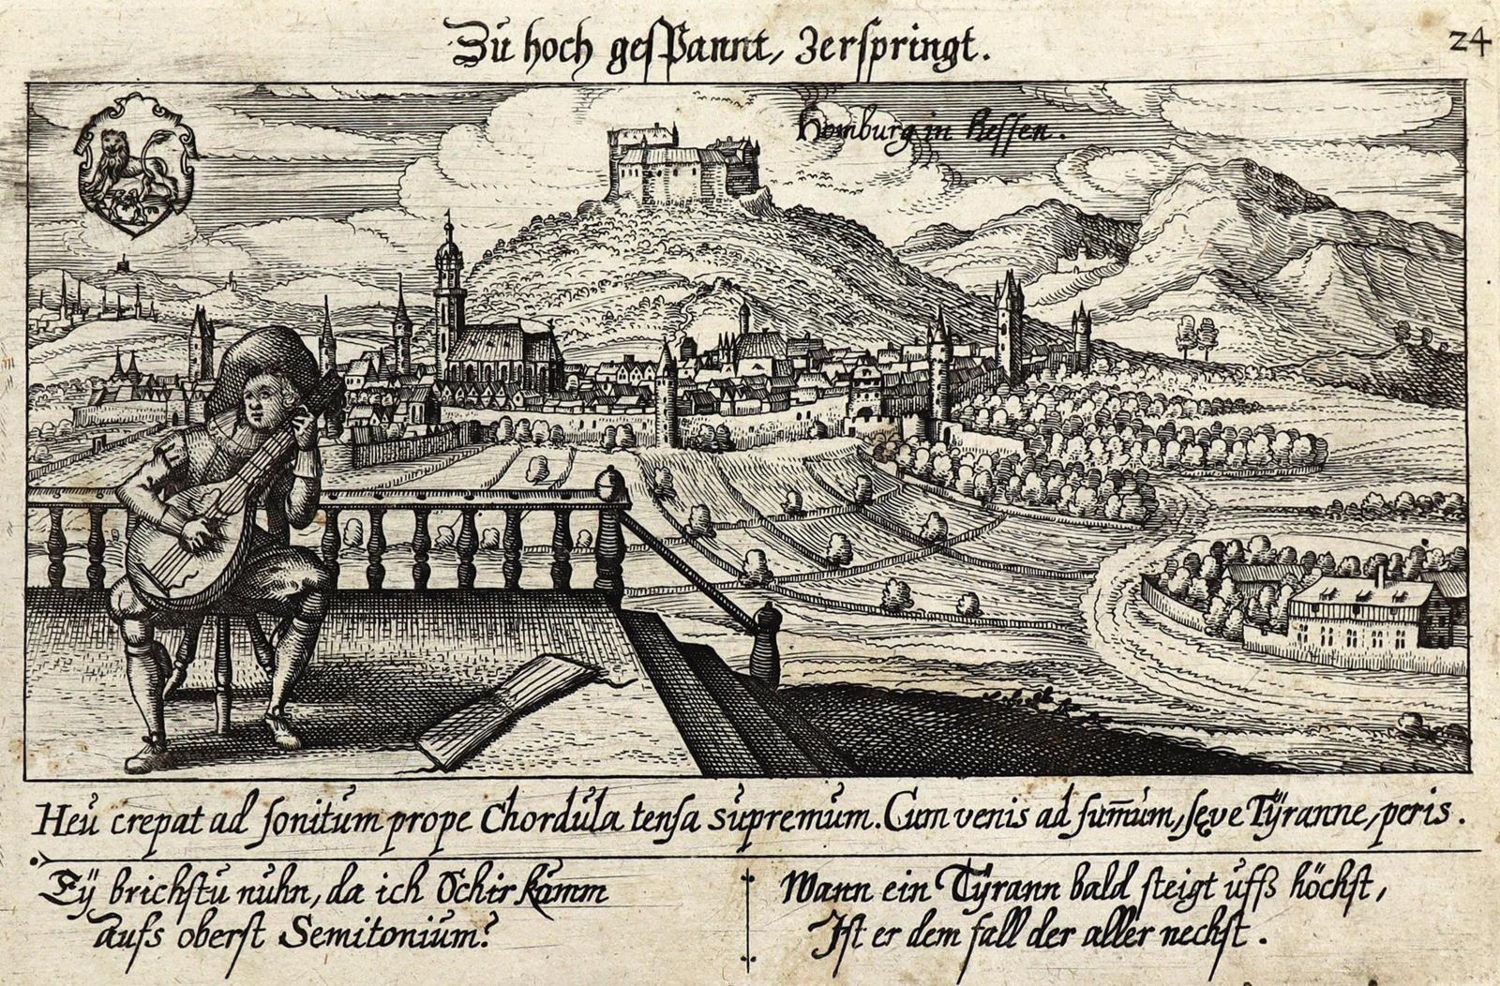 Zŭ hoch gespannt, zerspringt.
24
Homburg in Hessen.
Heŭ crepat ad sonitŭm prope Chordŭla tensa sŭpremŭm. Cum venis ad sum̄ŭm, sęve Tÿranne, peris.
Eÿ brichstŭ nŭhn, da ich schir kamm
aŭfs oberst Semitoniŭm?
Wann ein Tÿrann bald steigt ŭffs höchst,
Ist er dem fall der aller nechst.